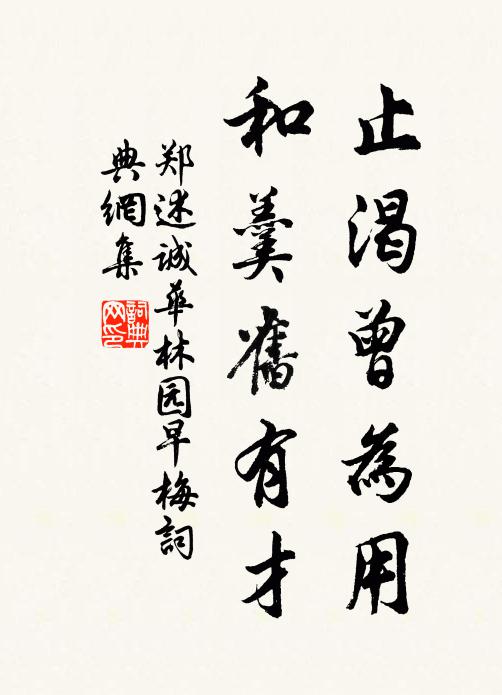 止渴曾為用
和羹舊有才
郑述诚華林园早梅詞
典網集
詞典
网印